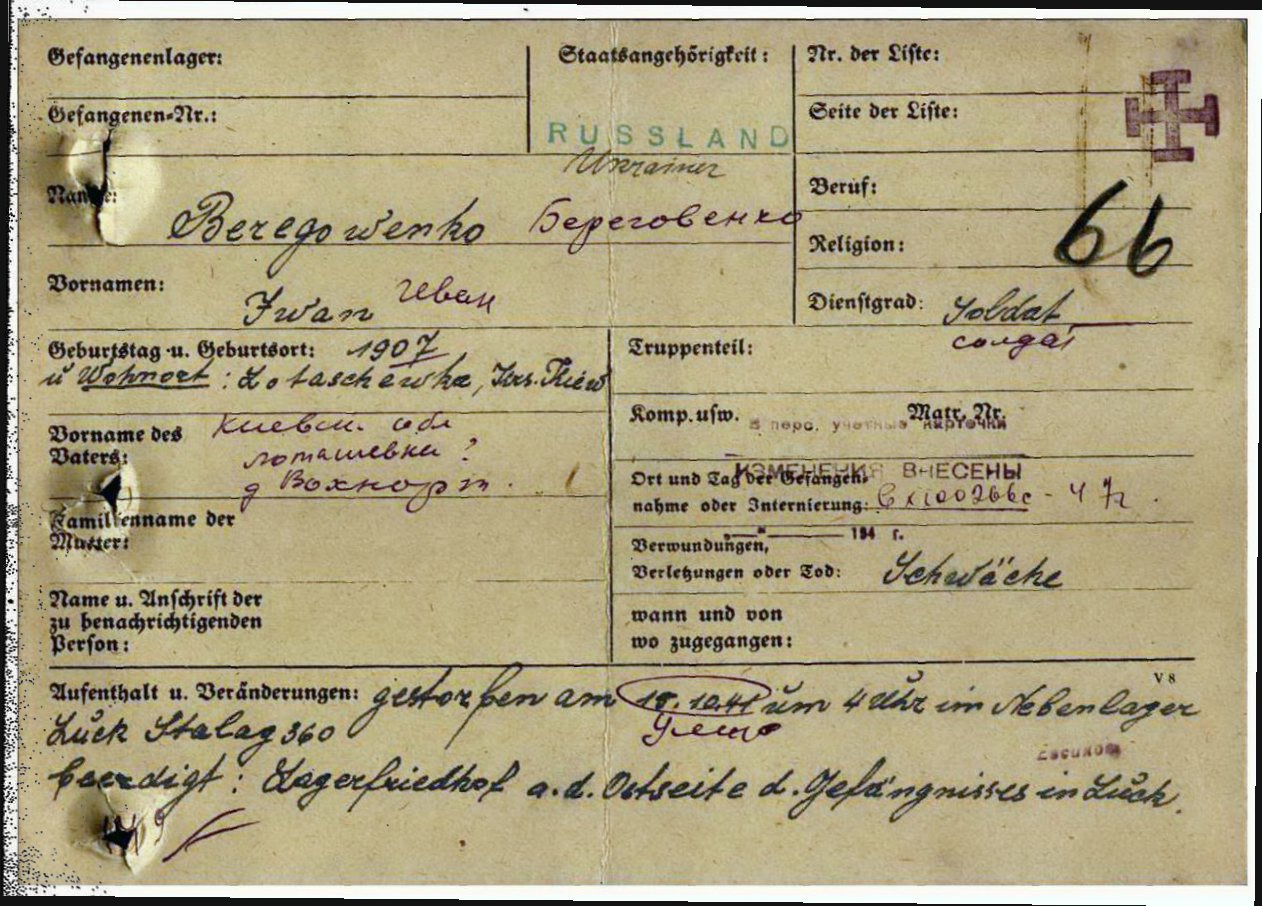 Gefangenenlager:
Staatsangehörigkeit:
Nr. der Liste:
Gefangenen-Nr.:
Seite der Liste:
RUSSLAND
Ukrainer
Name:
Beruf:
Beregowenko Береговенко
66
Religion:
Vornamen:
Iwan Иван
Dienstgrad: Soldat
солдат
Geburtstag u. Geburtsort: 1907
Truppenteil:
u Wohnort: Lotaschewka, Krs. Kiew
Komp. usw. Matr. Nr.
В перс. учетные карточки
Vorname des Vaters:
Киевск. обл
лоташевка ?
ИЗМЕНЕНИЯ ВНЕСЕНЫ
Ort und Tag der Gefangen-
nahme oder Internierung:
Familienname der
Mutter:
"194 г.
Verwundungen,
Verletzungen oder Tod: Schwäche
Name u. Anschrift der
zu benachrichtigenden
Person:
wann und von
wo zugegangen:
V 8
Aufenthalt u. Veränderungen: gestorben am 10.41 um 4 Uhr im Nebenlager
Luck Stalag 360
beerdigt: Lagerfriedhof a. d. Ostseite d. Gefängnisses in Luck.